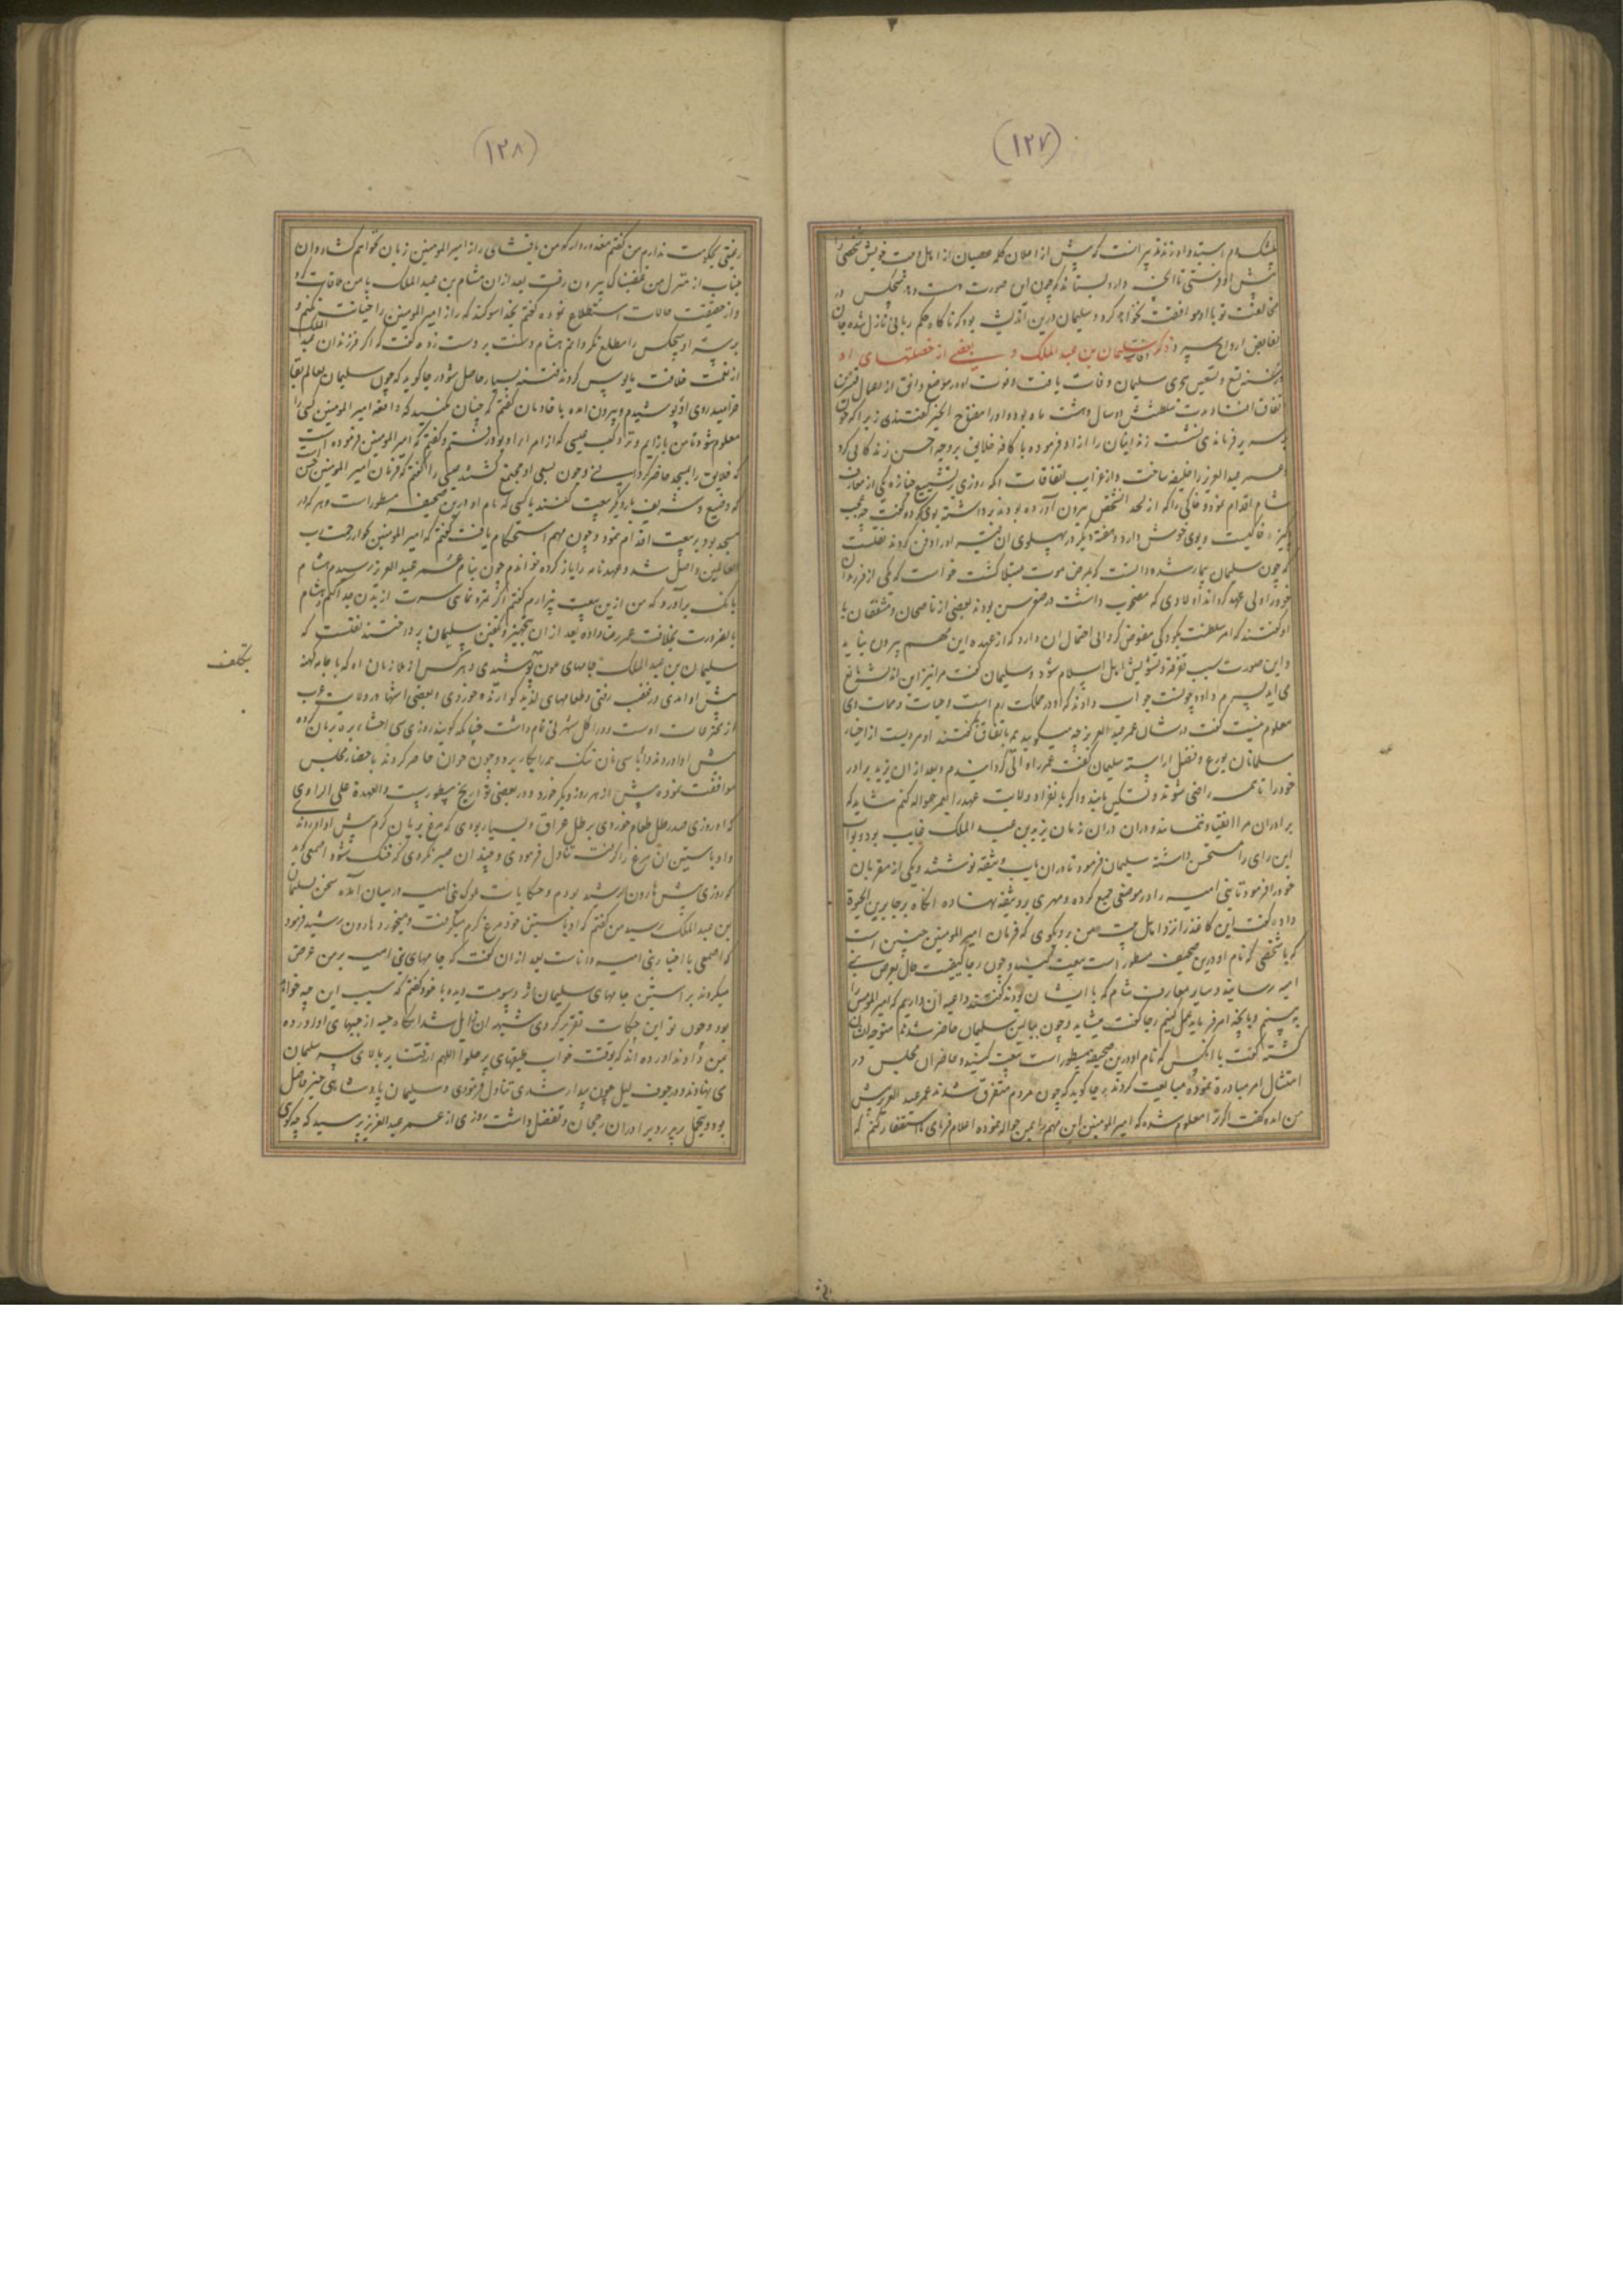 (۱۲۷)
پیش او فرستی تا انچه دارد بستاند که چون این صورت
مخالفت تو با او موافقت نخواهد کرد و سلیمان درین اندیشه بود که ناکاه حکم ربانی نازل شده جان
بقابض ارواح سپرد ذکر وفات سلیمان بن عبد الملک و بعضی از خصلتهای او
در سنه تسع و تسعین هجری سلیمان وفات یافت و فوت او در موضع دابق از اعمال قنسرین
اتفاق افتاد و مدت سلطنتش دو سال و هشت ماه بوده او را مفتاح الخیر گفتندی زیرا که چون
بر سریر فرماندهی نشست زندانیان را ازاد فرموده با کافه خلایق بر وجه احسن زندکانی کرد
و عمر عبد العزیز را خلیفه ساخت و از غرایب اتفاقات انکه روزی بتشییع جنازه یکی از معارف
شام اقدام نمود و خاکی را که از لحد ان شخص بیرون آورده بودند برداشته بوی کرد و گفت چه عجب
پاکیزه خاکیست و بوی خوش دارد و هفته دیگر در پهلوی ان قبر او را دفن کردند نقلست
که چون سلیمان بیمار شد و دانست که بمرض موت مبتلا گشت خواست که یکی از فرزندان
خود را ولی عهد گرداند و اولادی که مصحوب داشت در صغر سن بودند بعضی از ناصحان و مشفقان با
او گفتند که امر سلطنت بکودکی مفوض کردن احتمال ان دارد که از عهده این مهم بیرون نیاید
و این صورت سبب تفرقه و تشویش اهل اسلام شود و سلیمان گفت مرا نیز این اندیشه مانع
می اید پسرم داود چونست جواب دادند که او در مملکت روم است و حیات و ممات وی
معلوم نیست گفت در شان عمر عبد العزیز چه میگویید همه باتفاق گفتند او مردیست از اخیار
مسلمانان بورع و فضل اراسته سلیمان گفت عمر را والی گردانیدم و بعد از ان یزید برادر
خود را تا همه راضی شوند و تسکین یابند و اگر بانفراد ولایت عهد را بعمر حواله کنم شاید که
برادران مرا انقیاد ننمایند و دران زمان یزید بن عبد الملک غایب بود و نواب
این رای را مستحسن داشته سلیمان فرمود تا دران باب وثیقه نوشتند و یکی از مقربان
خود را فرمود تا بنی امیه را در موضعی جمع کرده و مهری بر وثیقه نهاده انکاه برجا بن الحیوة
داده گفت این کاغذ را نزد اهل بیت من برو بگوی که فرمان امیر المومنین چنین است
که با شخصی که نام او درین صحیفه مسطور است بیعت کنید و چون رجا کیفیت حال بعرض بنی
امیه رسانید و سایر معارف شام که با ایشان بودند گفتند داعیه ان داریم که امیر المومنین را
به بینیم و بانچه امر فرماید عمل کنیم رجا گفت میشاید و چون ببالین سلیمان حاضر شدند متوجه ایشان
گشته گفت با انکس که نام او درین صحیفه مسطور است بیعت کنید و حاضران مجلس در
امتثال امر مبادرت نموده مبایعت کردند رجا گوید که چون مردم متفرق شدند عمر عبد العزیز پیش
من امده گفت اگر ترا معلوم شده که امیر المومنین این مهم را بمن حواله نموده اعلام فرمای تا استعفا کنم که
(۱۲۸)
رغبتی بحکومت ندارم من گفتم معذور دار که من بافشای راز امیر المومنین زبان نخواهم گشاد و ان
جناب از منزل من غضبناک بیرون رفت بعد از ان هشام بن عبد الملک با من ملاقات کرد
و از حقیقت حالات استطلاع نموده گفتم بخدا سوگند که راز امیر المومنین را خیانت نکنم و
بر سر او هیچکس را مطلع نگردانم هشام دست بر دست زد و گفت که اگر فرزندان عبد الملک
از نعمت خلافت مایوس گردند فتنه بسیار حاصل شود رجا گوید که چون سلیمان بعالم بقا
خرامید روی او پوشیدم و بیرون امده با خادمان گفتم که چنان نکنید که واقعه امیر المومنین کسی را
معلوم شود تا من باز ایم و نزد کعب عبسی که از امراء او بود رفتم و گفتم که امیر المومنین فرموده است
که خلایق را بمسجد حاضر گردانی و چون بسعی او مجتمع گشتند عبسی را گفتم که فرمان امیر المومنین چنین است
که وضیع و شریف بار دیگر بیعت کنند با کسی که نام او درین صحیفه مسطور است و هر که در
مسجد بود بر بیعت اقدام نمود و چون مهم استحکام یافت گفتم که امیر المومنین بجوار رحمت رب
العالمین واصل شد و عهدنامه را باز کرده خواندم چون بنام عمر عبد العزیز رسیدم هشام
بانک براورد که من ازین بیعت بیزارم گفتم اگر تمرد نمایی سرت از بدن جدا کنم هشام
بالضرورت بخلافت عمر رضا داده بعد از ان بتجهیز و تکفین سلیمان پرداختند نقلست که
سلیمان بن عبد الملک جامهای ملون پوشیدی و هر کس از ملازمان او که با جامه کهنه
پیش او امدی در غضب رفتی و طعامهای لذیذ گوارنده خوردی و بعضی اشیا در ولایت عرب
از مخترعات اوست و در اکل شهرتی تمام داشت چنانکه گویند روزی سی احشاء بره بریان کرده
پیش او اوردند و ان را با سی نان تنک همه را بکار برد و چون خوان حاضر کردند با حضار مجلس
موافقت نموده بیش از هر روز دیگر خورد و در بعضی تواریخ مسطورست و العهدة علی الراوی
که او روزی صد رطل طعام خوردی برطل عراق و بسیار بودی که مرغ بریان گرم پیش او اوردند
و او باستین ان مرغ را گرفته تناول فرمودی و چندان صبر نکردی که خنک شود اصمعی گوید
که روزی پیش هارون الرشید بودم و حکایات ملوک بنی امیه در میان آمده سخن سلیمان
بن عبد الملک رسید من گفتم که او باستین خود مرغ گرم میگرفت و میخورد هارون رشید فرمود
که اصمعی با اخبار بنی امیه داناست بعد از ان گفت که جامهای بنی امیه بر من عرض
میکردند بر استین جامهای سلیمان اثر دسومت دیده با خود گفتم که سبب این چه خواهد
بود و چون تو این حکایت تقریر کردی شبهه ان زایل شد انگاه جبه از جبهای او اورده
بمن دادند اورده اند که بوقت خواب طبقهای پر حلوا بر بالای سر سلیمان
می نهادند و در جوف لیل چون بیدار شدی تناول فرمودی و سلیمان پادشاهی خیر فاضل
بود و بتجمل بر برادران رجحان و تفضل داشت روزی از عمر عبد العزیز پرسید که چه گوی
بتکلف